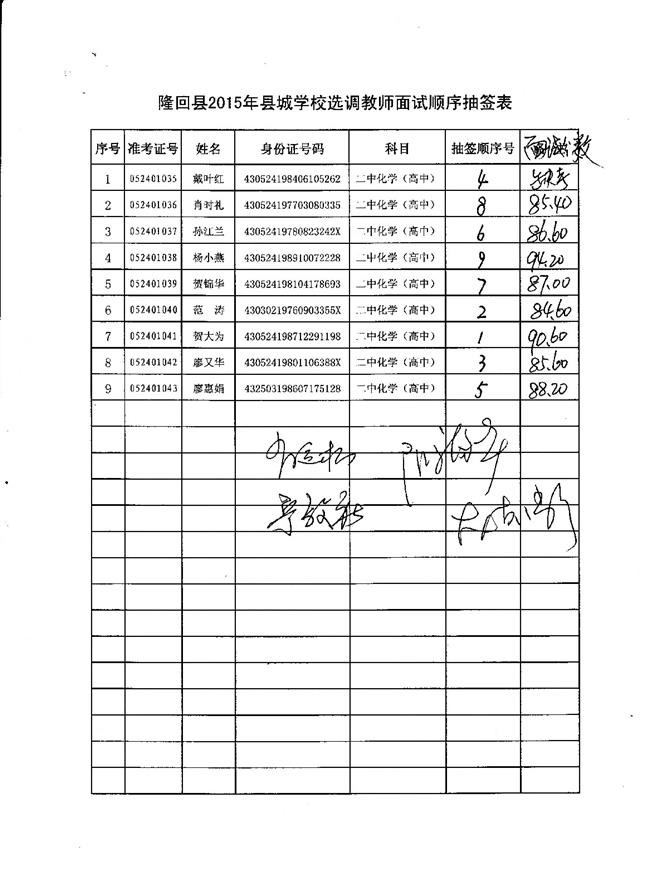 隆回县2015年县城学校选调教师面试顺序抽签表
序号 准考证号 姓名 身份证号码 科目 抽签顺序号 面试分数
1 052401035 戴叶红 430524198406105262 二中化学（高中） 4
2 052401036 肖时礼 430524197703080335 二中化学（高中） 8 85.40
3 052401037 孙江兰 43052419780823242X 二中化学（高中） 6 86.60
4 052401038 杨小燕 430524198910072228 二中化学（高中） 9 94.20
5 052401039 贺锦华 430524198104178693 二中化学（高中） 7 87.00
6 052401040 范 涛 43030219760903355X 二中化学（高中） 2 84.60
7 052401041 贺大为 430524198712291198 二中化学（高中） 1 90.60
8 052401042 廖又华 43052419801106388X 二中化学（高中） 3 85.60
9 052401043 廖惠娟 432503198607175128 二中化学（高中） 5 88.20